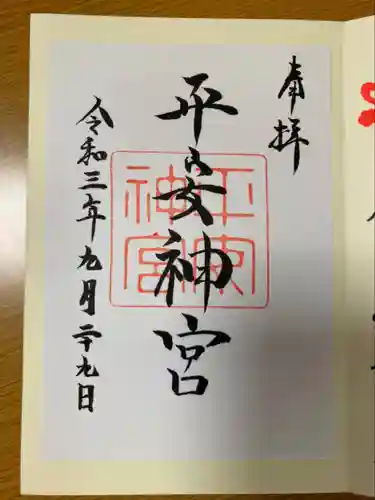 奉拝
平安神宮
平安
神宮
令和三年九月二十九日